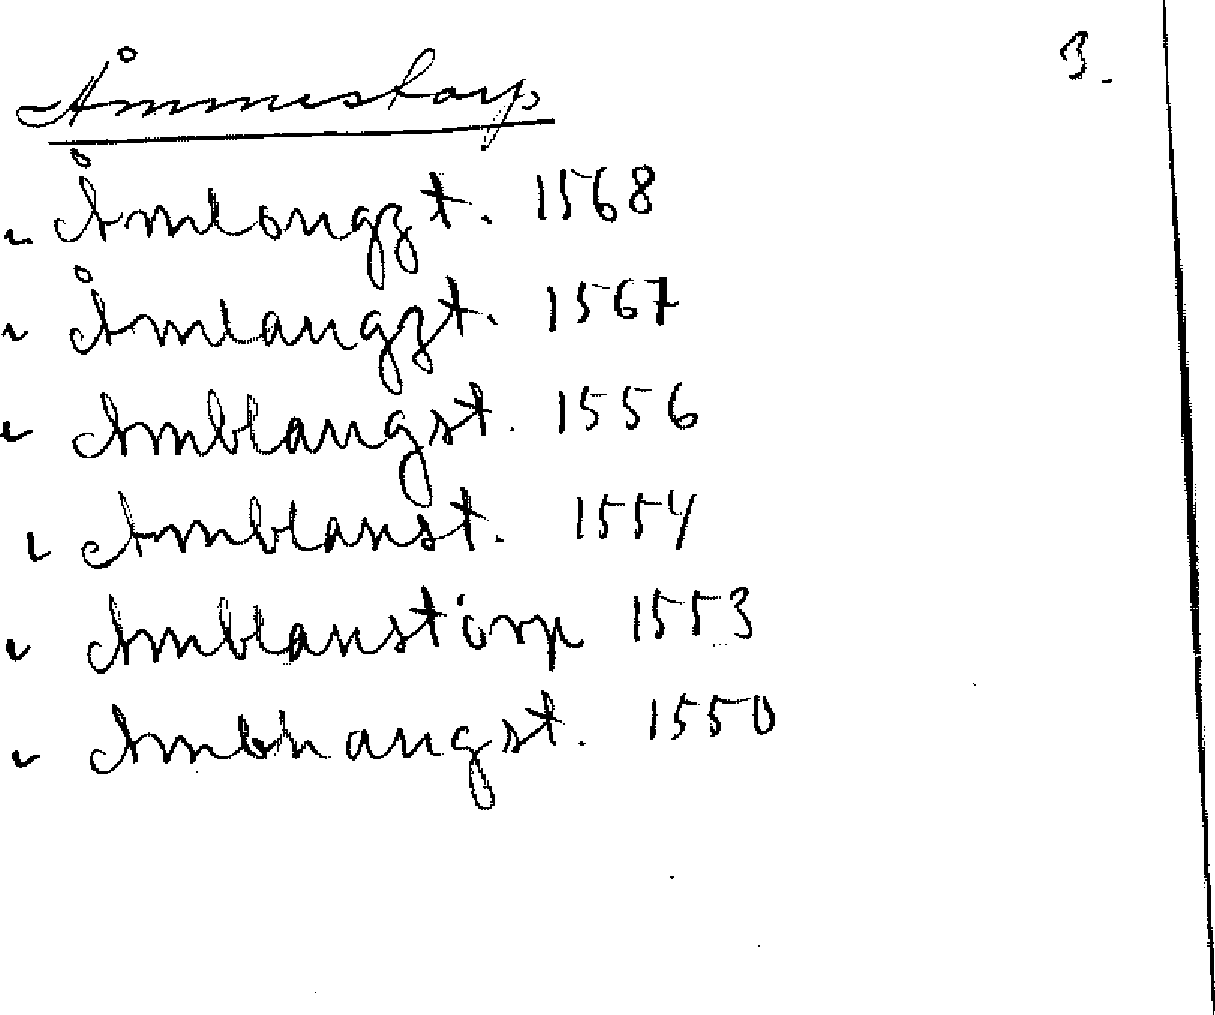 Åmmestorp 3.
Åmlongzt. 1568
Åmlangzt. 1567
Amblangst. 1556
Amblanst. 1554
Amblanstorp 1553
Ambnangst. 1550